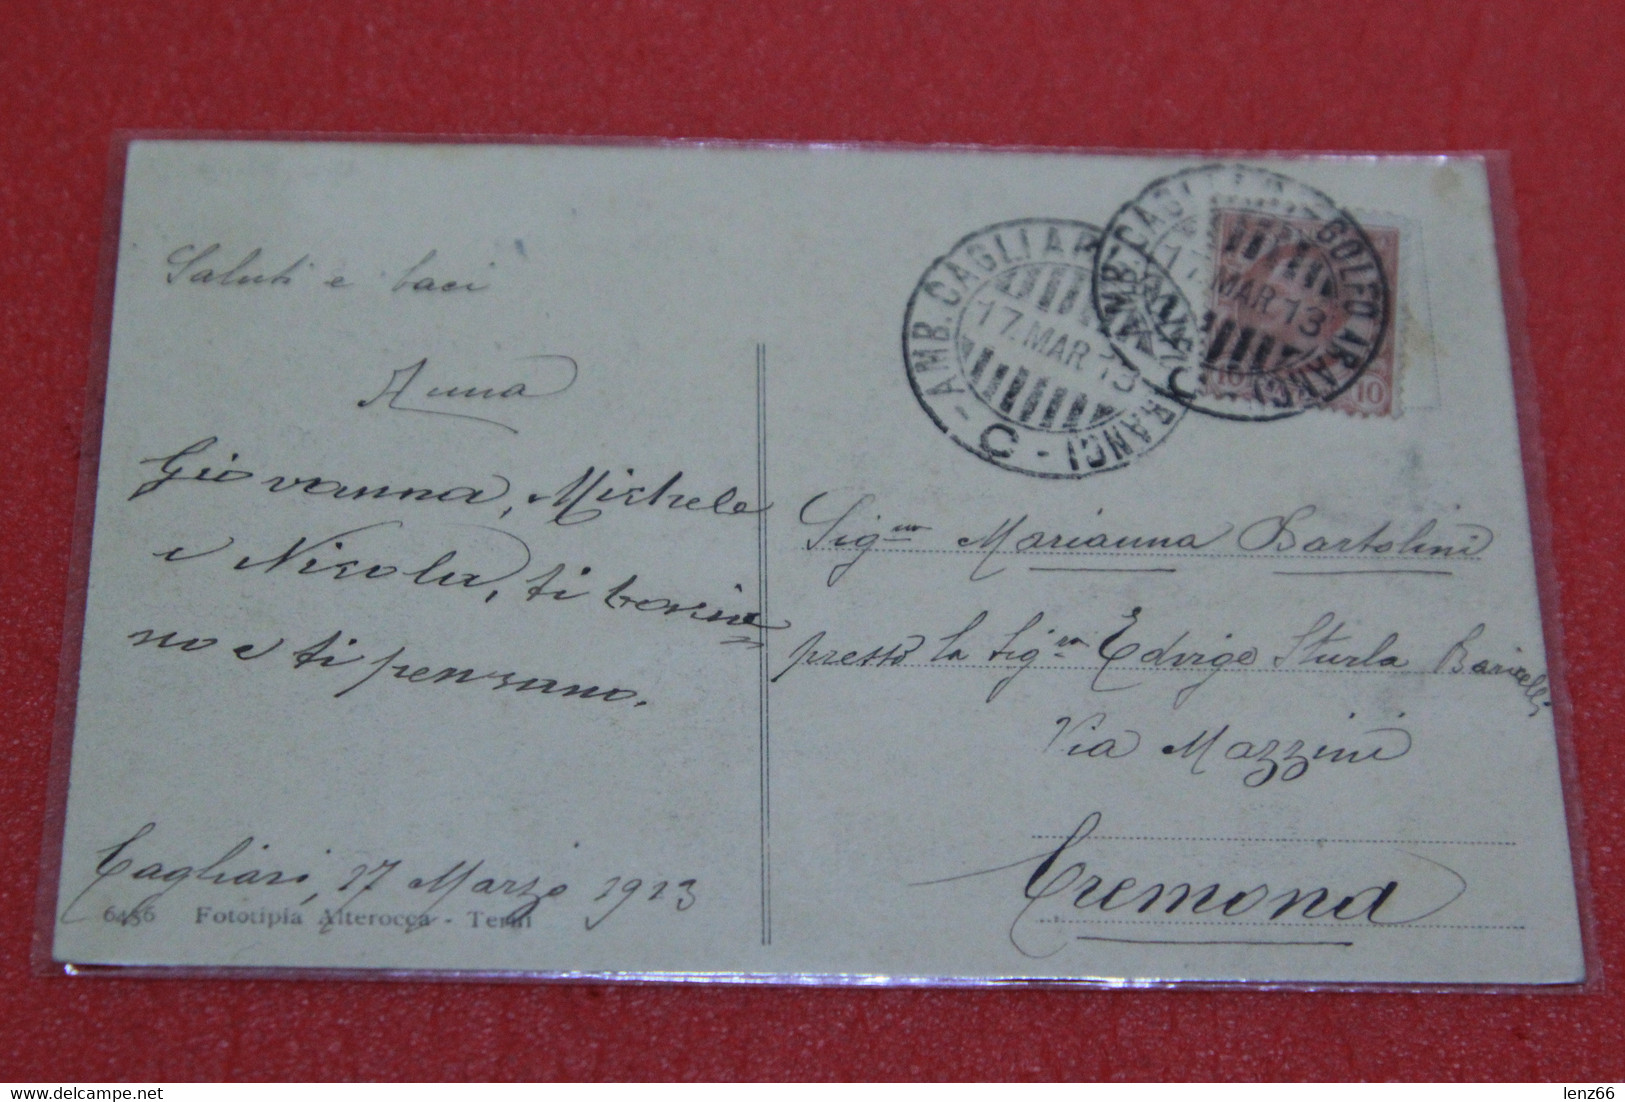 Saluti e baci
Anna
Giovanna, Michele
e Nicola, ti bacia
no e ti pensano.
Cagliari, 17 Marzo 1913
6456 Fototipia Alterocca - Terni
AMB. CAGLIARI ARANCI - C -
17. MAR 13
AMB. CAGLIARI - GOLFO ARANCI C
17 MAR. 13
10 10
Sig.na Marianna Bartolini
presso la Sig.ra Edvige Sturla Baricelli
Via Mazzini
Cremona
delcampe.net
lenz66